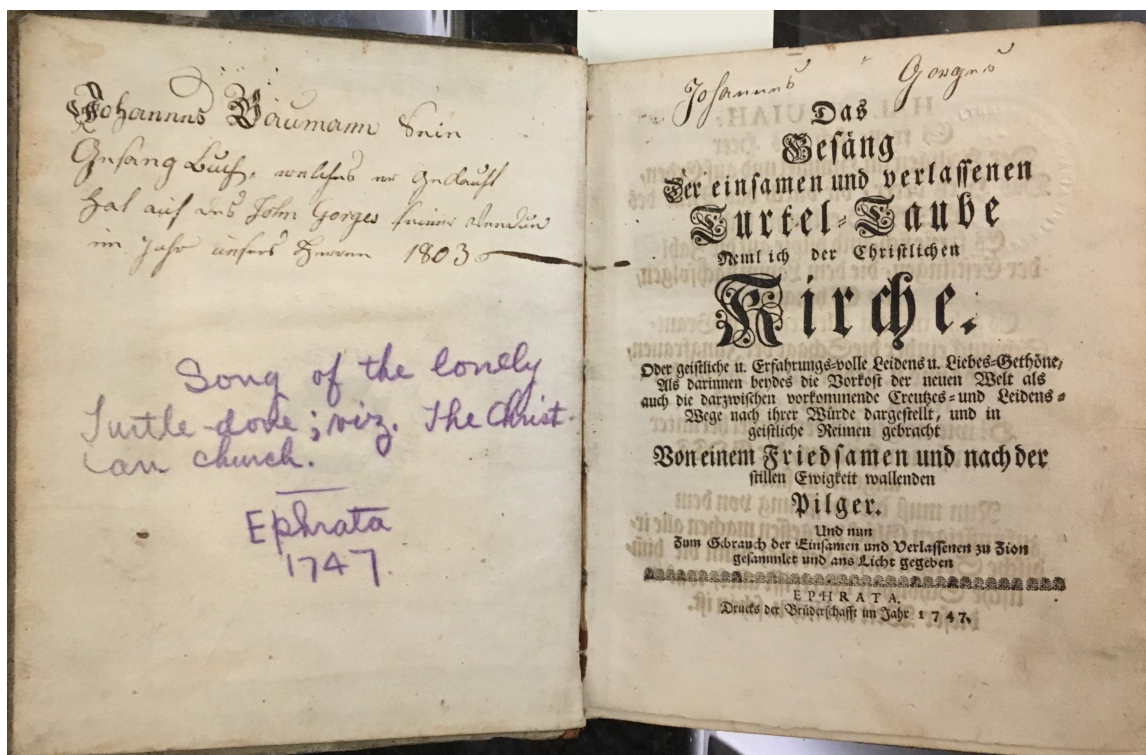 Johannes Baumann Sein
Gesang Buch, welches er gekauft
hat auf des John Gorges seiner Vendu
im Jahr unsers Herren 1803
Song of the lonely
Turtle-dove; viz. The Christ-
ian church.
Ephrata
1747.
Johannes Gorges
Das
Gesäng
Der einsamen und verlassenen
Turtel-Taube
Nemlich der Christlichen
Kirche.
Oder geistliche u. Erfahrungs-volle Leidens u. Liebes-Gethöne,
Als darinnen beydes die Vorkost der neuen Welt als
auch die darzwischen vorkommende Creutzes- und Leidens-
Wege nach ihrer Würde dargestellt, und in
geistliche Reimen gebracht
Von einem Friedsamen und nach der
stillen Ewigkeit wallenden
Pilger.
Und nun
Zum Gebrauch der Einsamen und Verlassenen zu Zion
gesammlet und ans Licht gegeben
EPHRATA.
Drucks der Brüderschafft im Jahr 1747.